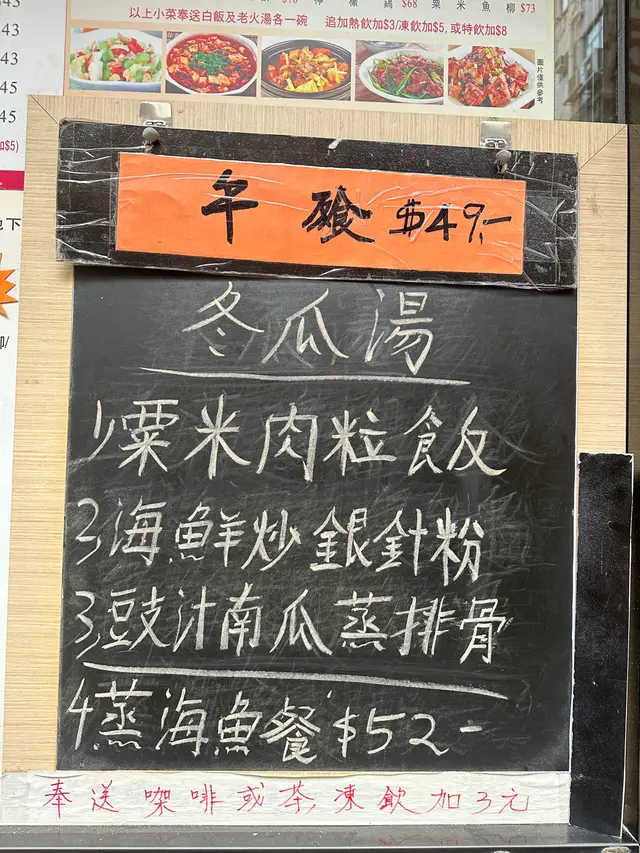 $68 粟米魚柳 $73
以上小菜奉送白飯及老火湯各一碗 追加熱飲加$3/凍飲加$5, 或特飲加$8
圖片僅供參考
45
45
午餐 $49.-
冬瓜湯
1)粟米肉粒飯
2)海鮮炒銀針粉
3)豉汁南瓜蒸排骨
4蒸海魚餐 $52-
奉送咖啡或茶,凍飲加3元